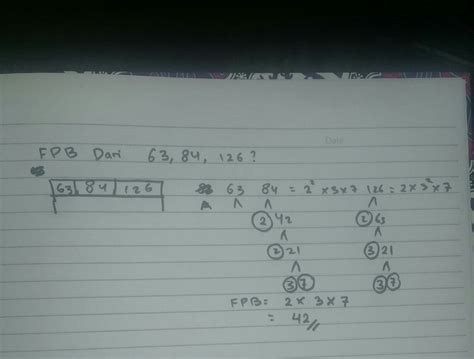 Date
FPB Dari 63, 84, 126?
63 84 126
63 84 = 2² x 3 x 7 126 = 2 x 3² x 7
2 42 2 63
2 21 3 21
3 7 3 7
FPB: 2 x 3 x 7
= 42 //